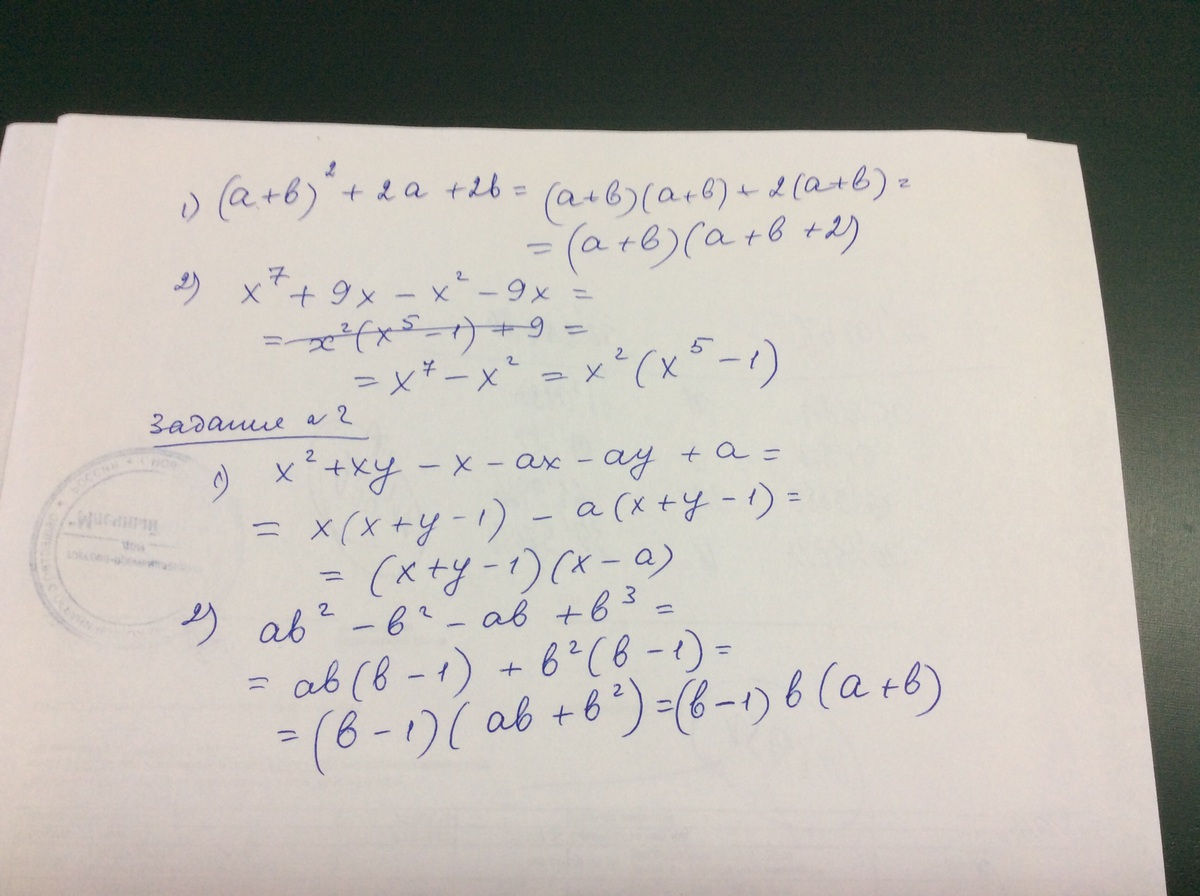 1) (a+b)² + 2a + 2b = (a+b)(a+b) + 2(a+b) =
= (a+b)(a+b+2)
2) x⁷ + 9x - x² - 9x =
= x²(x⁵ - 1) + 9 =
= x⁷ - x² = x²(x⁵ - 1)
Задание №2
1) x² + xy - x - ax - ay + a =
= x(x+y-1) - a(x+y-1) =
= (x+y-1)(x-a)
2) ab² - b² - ab + b³ =
= ab(b-1) + b²(b-1) =
= (b-1)(ab+b²) = (b-1) b(a+b)